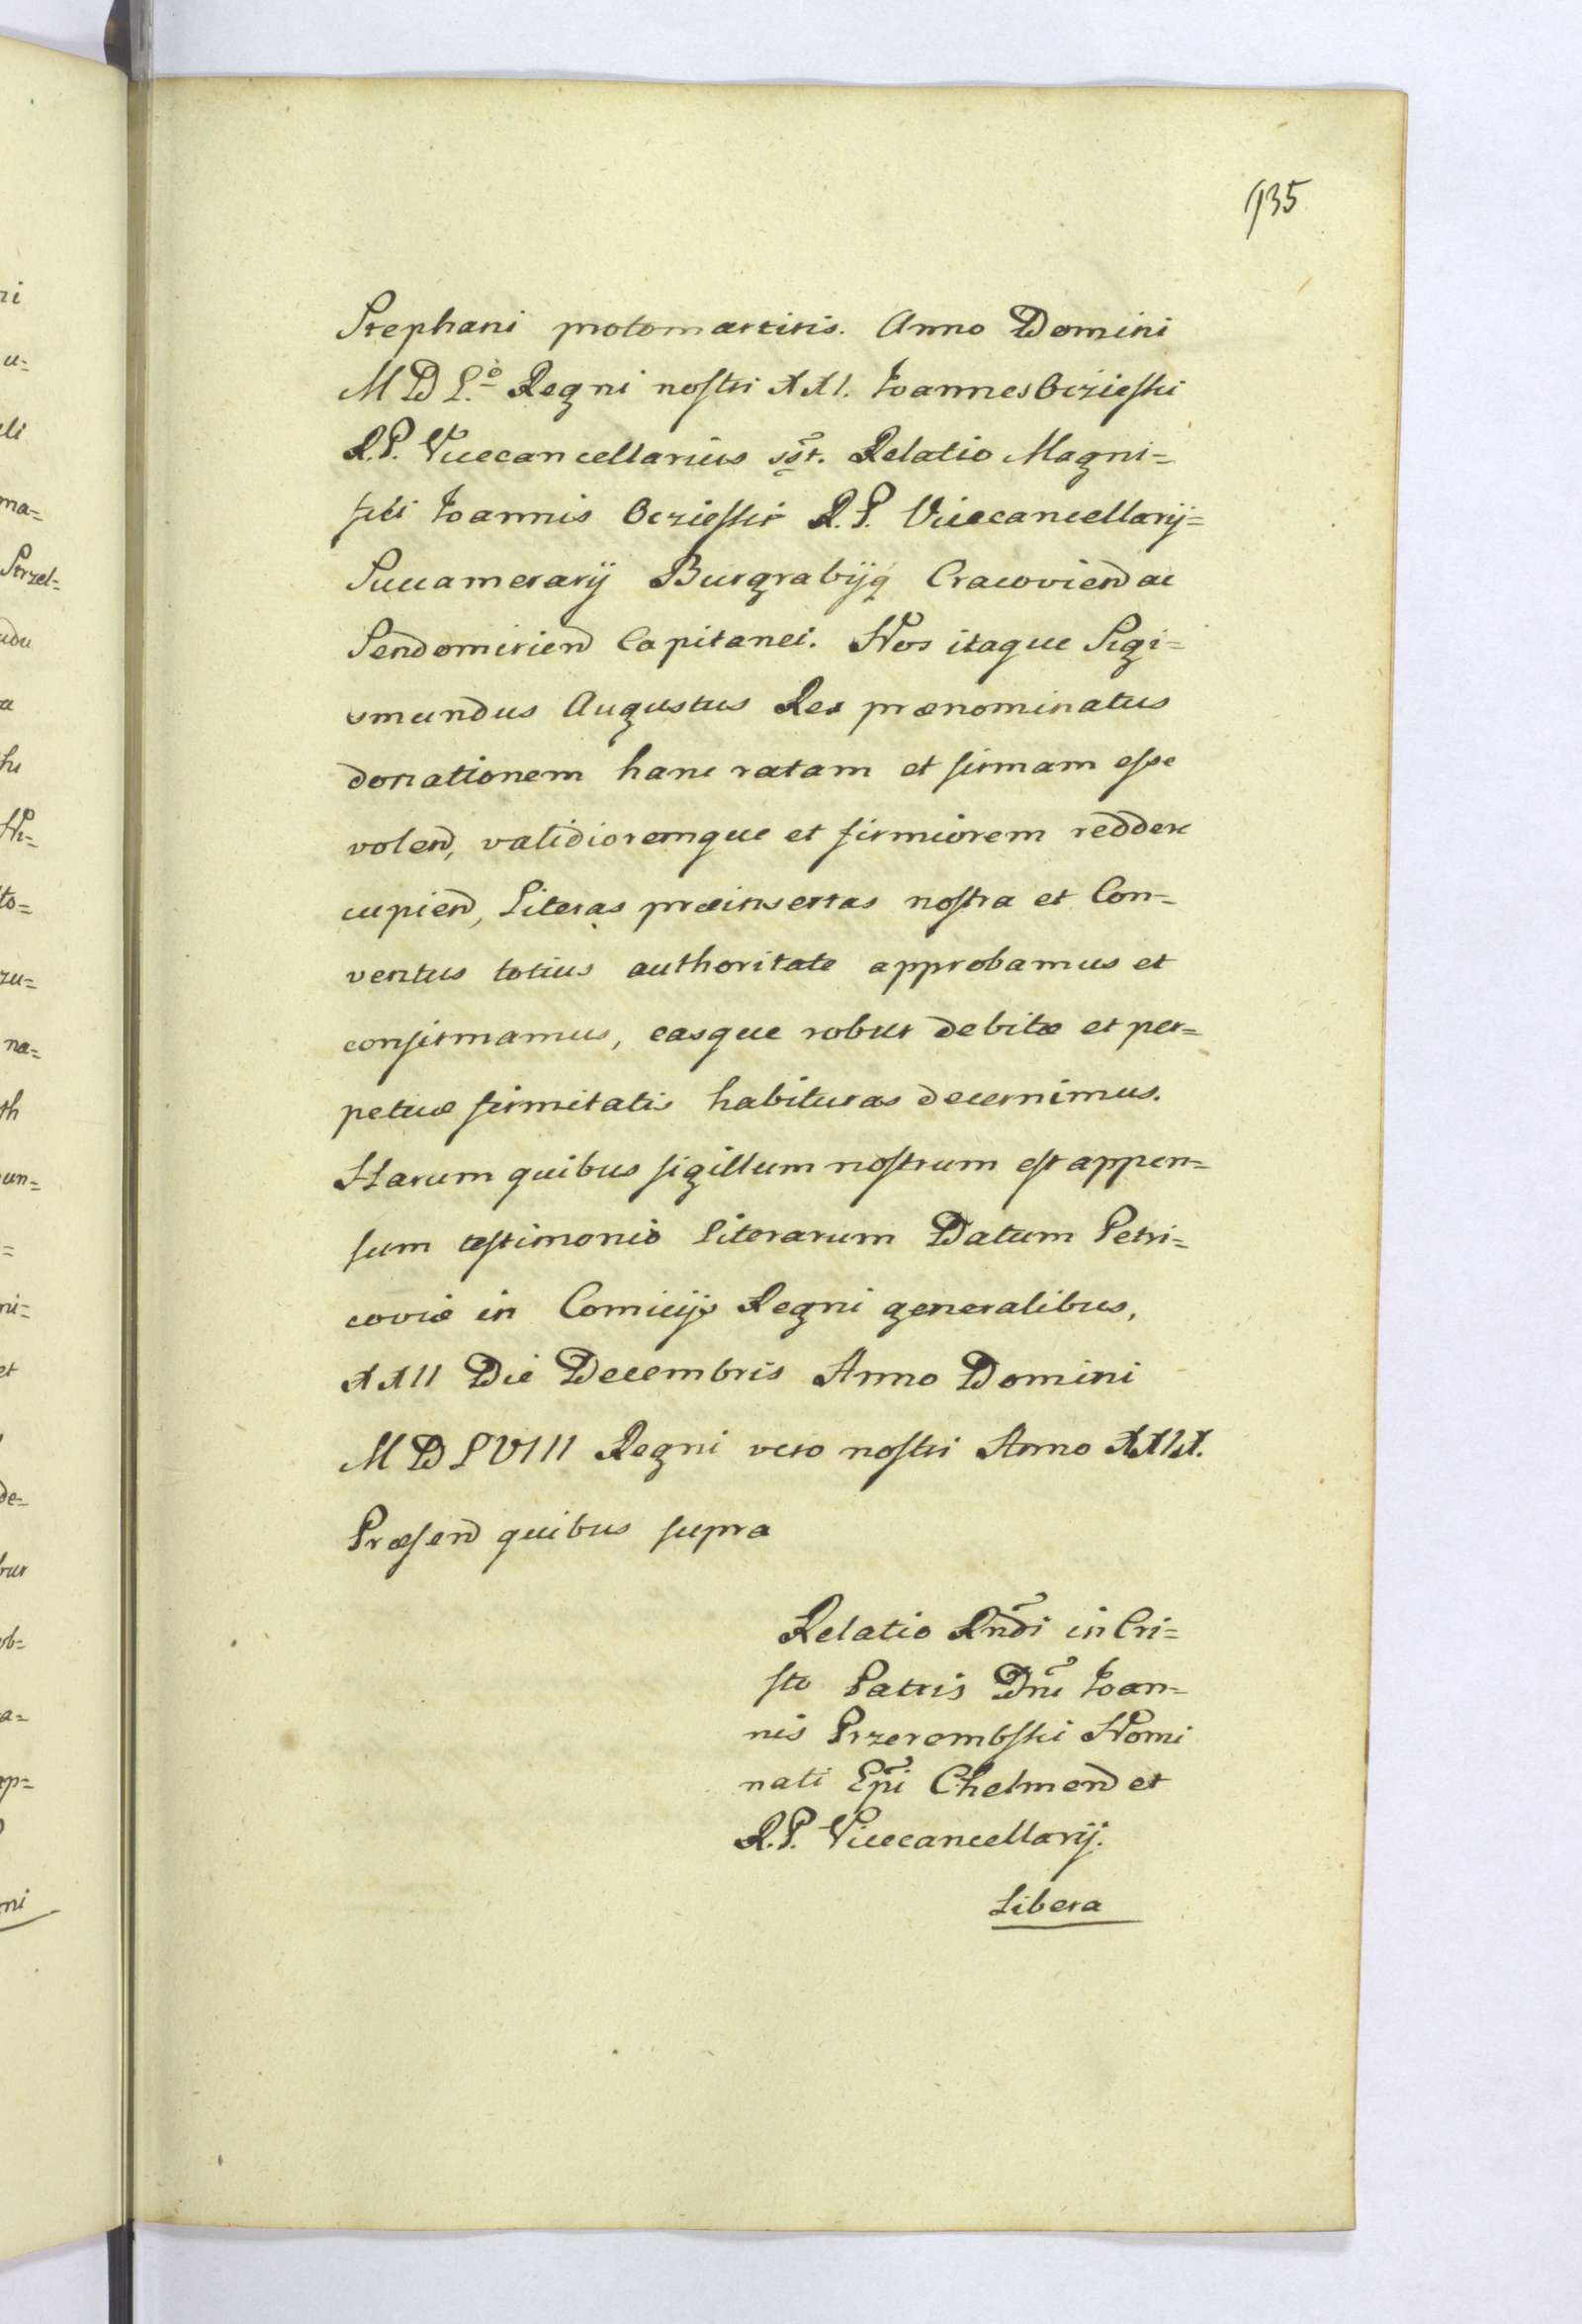 135
Stephani protomartiris. Anno Domini
M D L.o Regni nostri XXI. Ioannes Ocziesski
R. P. Vicecancellarius sst. Relatio Magni=
fici Ioannis Ocziesski R. P. Vicecancellarij=
Succamerarij Burgrabijq Cracoviend ac
Sendomiriend Capitanei. Nos itaque Sigi=
smundus Augustus Rex prænominatus
donationem hanc ratam et firmam esse
volend, validioremque et firmiorem reddere
cupiend, Literas præinsertas nostra et Con=
ventus totius authoritate approbamus et
confirmamus, easque robur debitæ et per=
petuæ firmitatis habituras decernimus.
Harum quibus sigillum nostrum est appen=
sum testimonio literarum Datum Petri=
coviæ in Comicijs Regni generalibus,
XXII Die Decembris Anno Domini
M D L VIII Regni vero nostri Anno XXIX.
Præsend quibus supra
Relatio Rndi in Cri=
sto Patris Dni Ioan=
nis Przerembski Nomi
nati Epi Chelmend et
R. P. Vicecancellarij.
Libera
ni
u=
eli
ma=
Strzel=
udu
a
to=
zu=
na=
th
un=
=
ni=
et
de=
bur
ob=
a=
ap=
mi